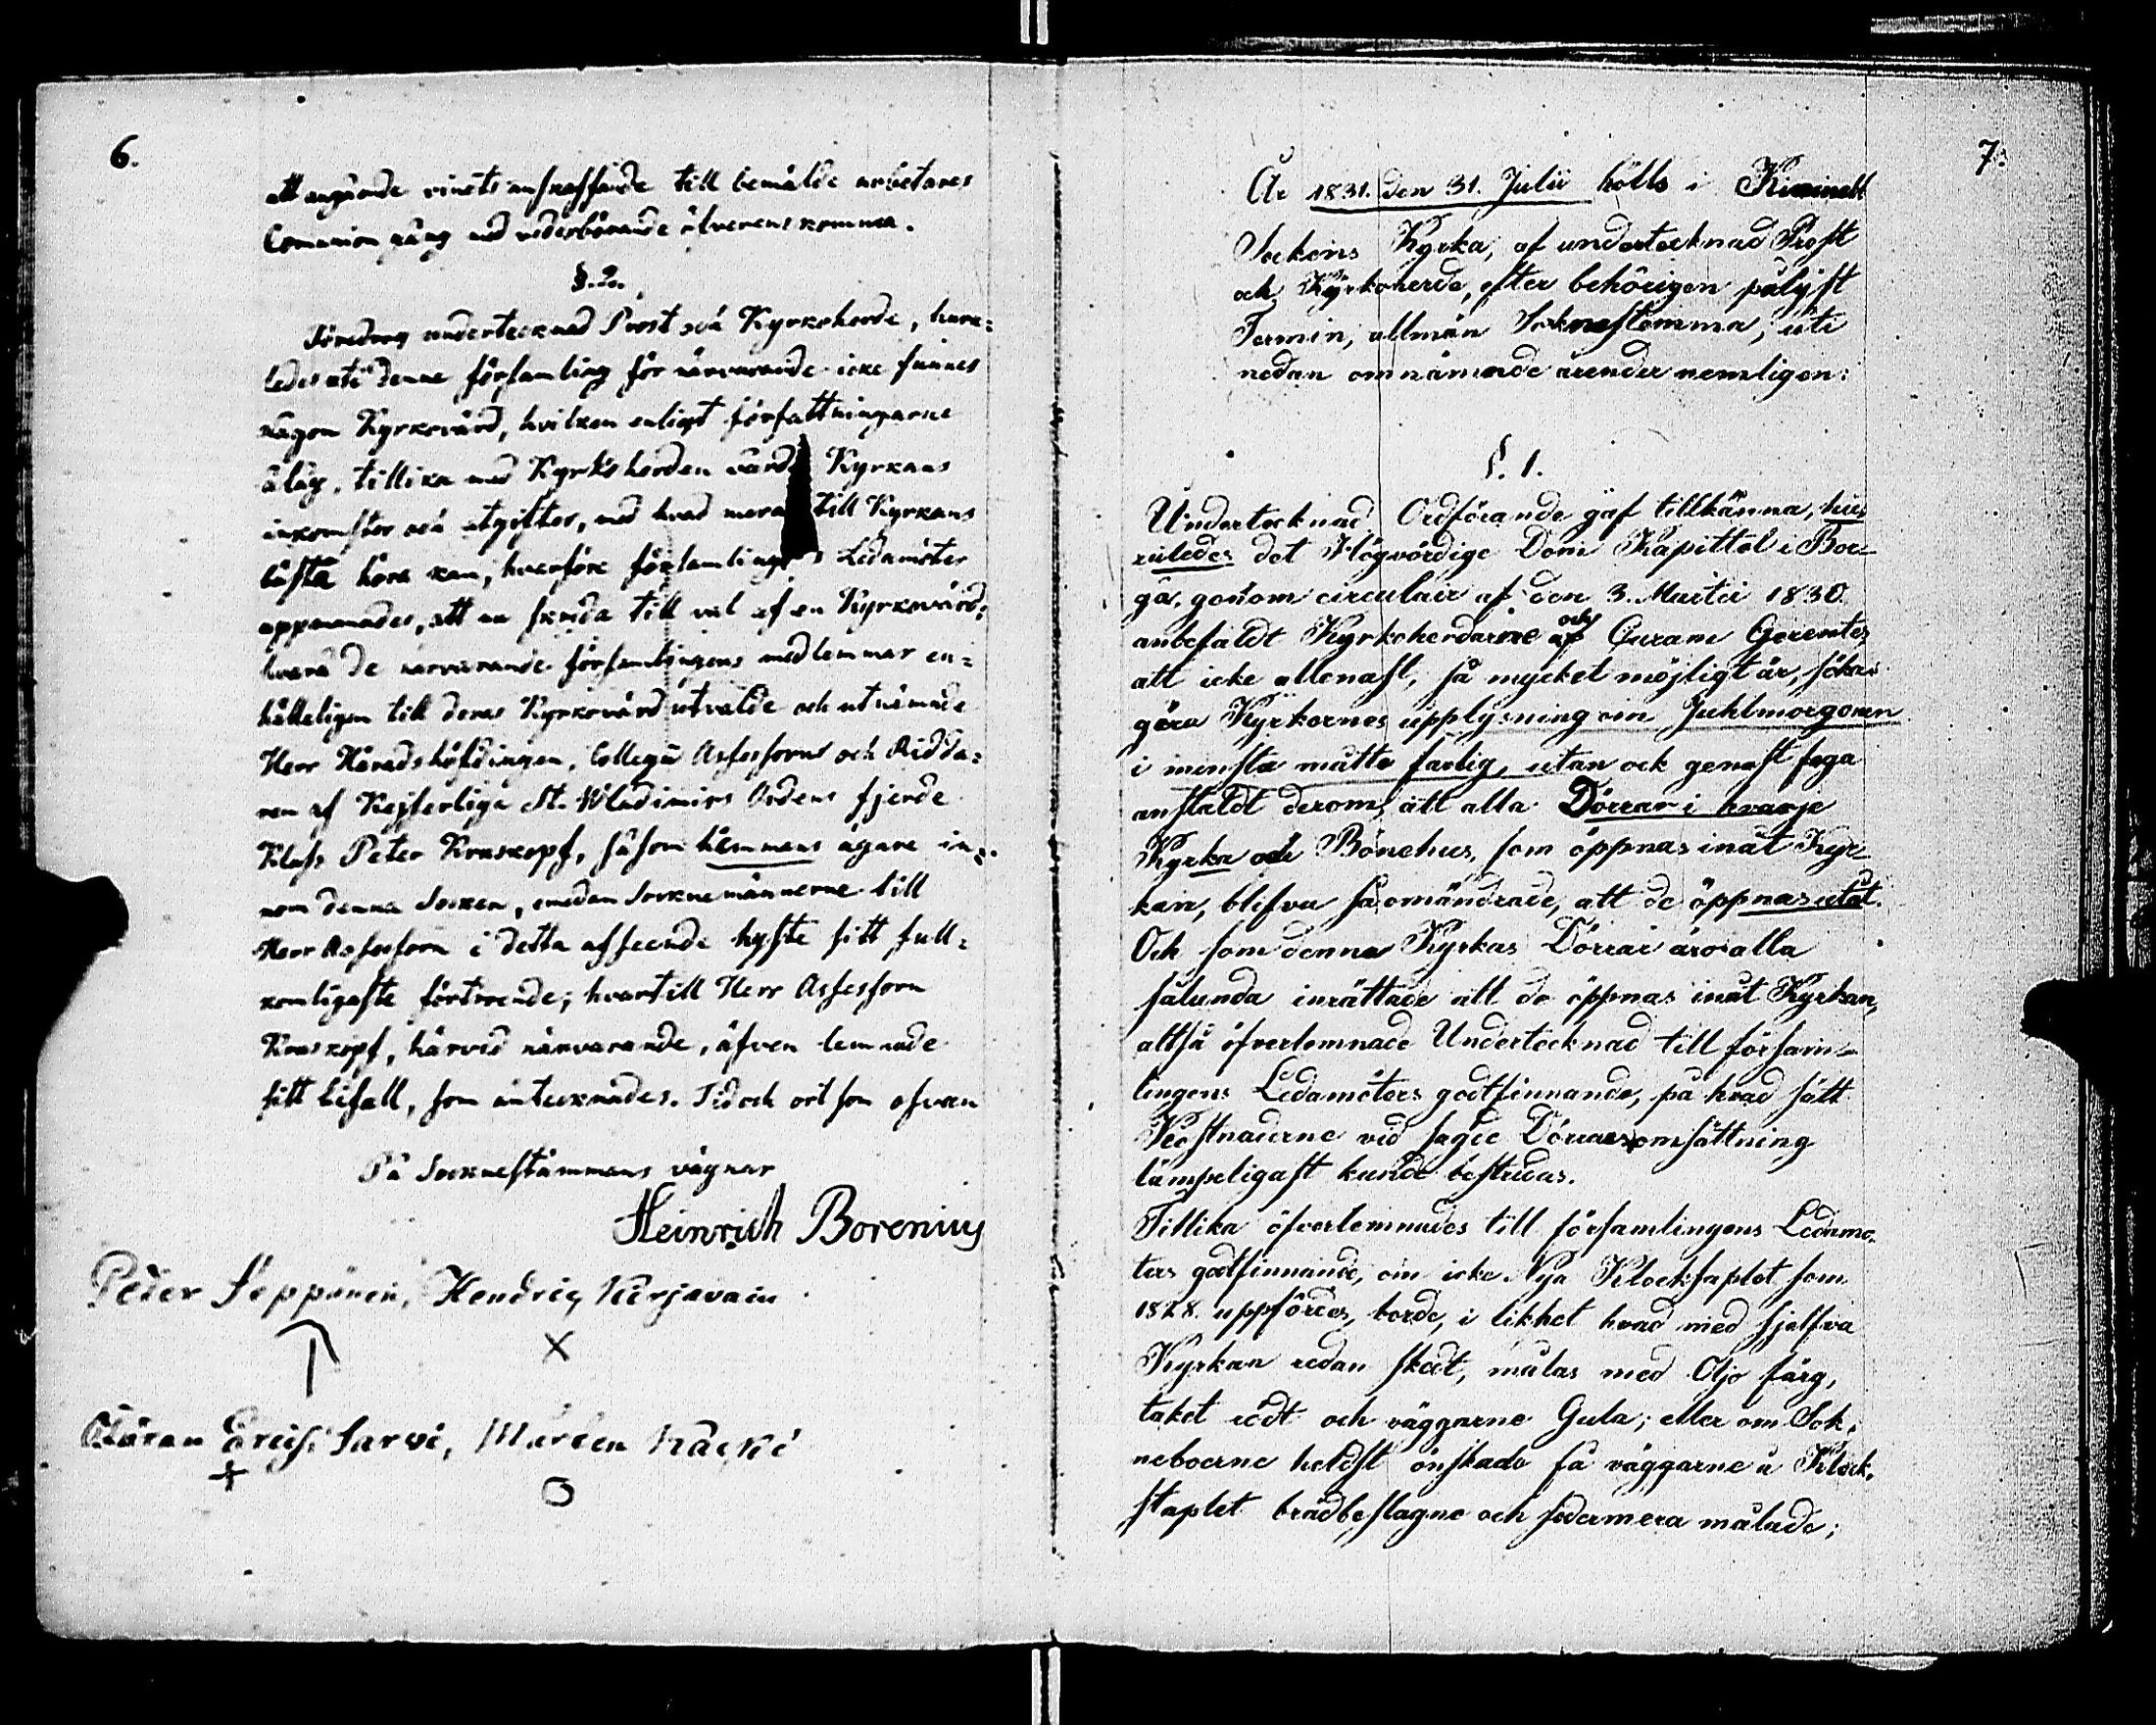 6.
att angående vinets anskaffande till bemälde arbetares
Comunion gång med vederbörande öfverenskomma.
§. 2.
Föredrog undertecknad Prost och Kyrkoherde, huru-
ledes uti denne församling för närvarande icke finnes
någon Kyrkovärd, hvilken enligt författningarne
ålåg, tillika med Kyrkoherden vårda Kyrkans
inkomster och utgifter, med hvad mera till Kyrkans
bästa höra kan, hvarföre församlingens Ledamöter
uppmanades, att nu skrida till val af en Kyrkovärd;
hvarå de närvarande församlingens medlemmar en-
hälleligen till deras Kyrkovärd utvalde och utnämnde
Herr Häradshöfdingen, Collegii Assessorn och Ridda-
ren af Kejserliga St. Wladimirs Ordens fjerde
Klass Peter Kruskopf, såsom hemmans ägare in-
nom denna Socken, emedan Socknemännerne till
Herr Assessorn i detta afseende hyste sitt full-
komligaste förtroende; hvartill Herr Assessorn
Kruskopf, härvid närvarande, äfven lemnade
sitt bifall, som antecknades. Tid och ort som ofvan
På Socknestämmans vägnar
Heinrich Borenius
Peter Seppänen, Hendric Karjavain
X
Erich Sarvi, Mårten
+
O
7.
År 1831. den 31. Julii hölls i
Sockens Kyrka, af undertecknad Prost
och Kyrkoherde, efter behörigen pålyst
Termin, allmän Soknestemma, uti
nedan omnämnde ärender nemligen:
§. 1.
Undertecknad Ordförande gaf tillkänna, hu-
ruledes det Högvördige Dom Kapittel i Bor-
gå, genom circulair af den 3. Martii 1830.
anbefaldt Kyrkoherdarne och Curam Gerentes
att icke allenast, så mycket möjligt är, söka
göra Kyrkornes upplysning om Juhlmorgonen
i minsta måtto farlig, utan ock genast foga
anstaldt derom, att alla Dörrar i hvarje
Kyrka och Bönehus, som öppnas inåt Kyr-
kan, blifva så omändrade, att de öppnas utåt.
Och som denna Kyrkas Dörrar äro alla
sålunda inrättade att de öppnas inåt Kyrkan,
altså öfverlemnade Undertecknad till försam-
lingens Ledamöters godtfinnande, på hvad sätt
Kostnaderne vid sagde Dörrars omsättning
lämpeligast kunde bestridas.
Tillika öfverlemnades till församlingens Ledamö-
ters godtfinnande, om icke Nya Klockstaplet som
1828. uppfördes, borde, i likhet hvad med sjelfva
Kyrkan redan skedt, målas med Oljo färg,
taket rödt och väggarne Gula; eller om Sok-
neboerne heldst önskade få väggarne å Klock-
staplet brädbeslagne och sedermera målade;